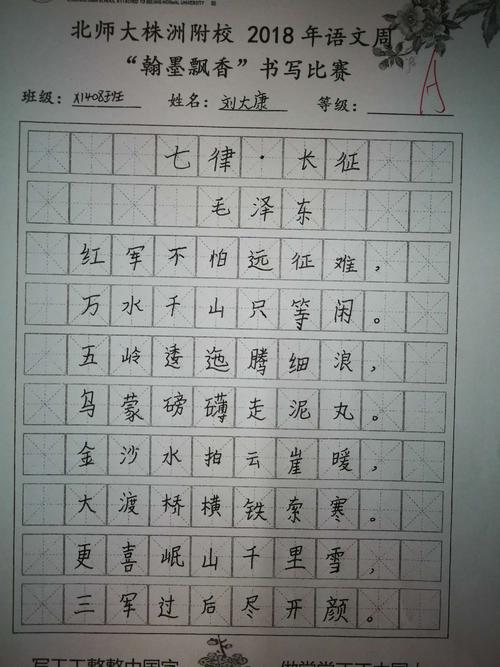 北师大株洲附校 2018 年语文周
“翰墨飘香”书写比赛
班级： 姓名：刘大康 等级： A
七律·长征
毛泽东
红军不怕远征难，
万水千山只等闲。
五岭逶迤腾细浪，
乌蒙磅礴走泥丸。
金沙水拍云崖暖，
大渡桥横铁索寒。
更喜岷山千里雪，
三军过后尽开颜。